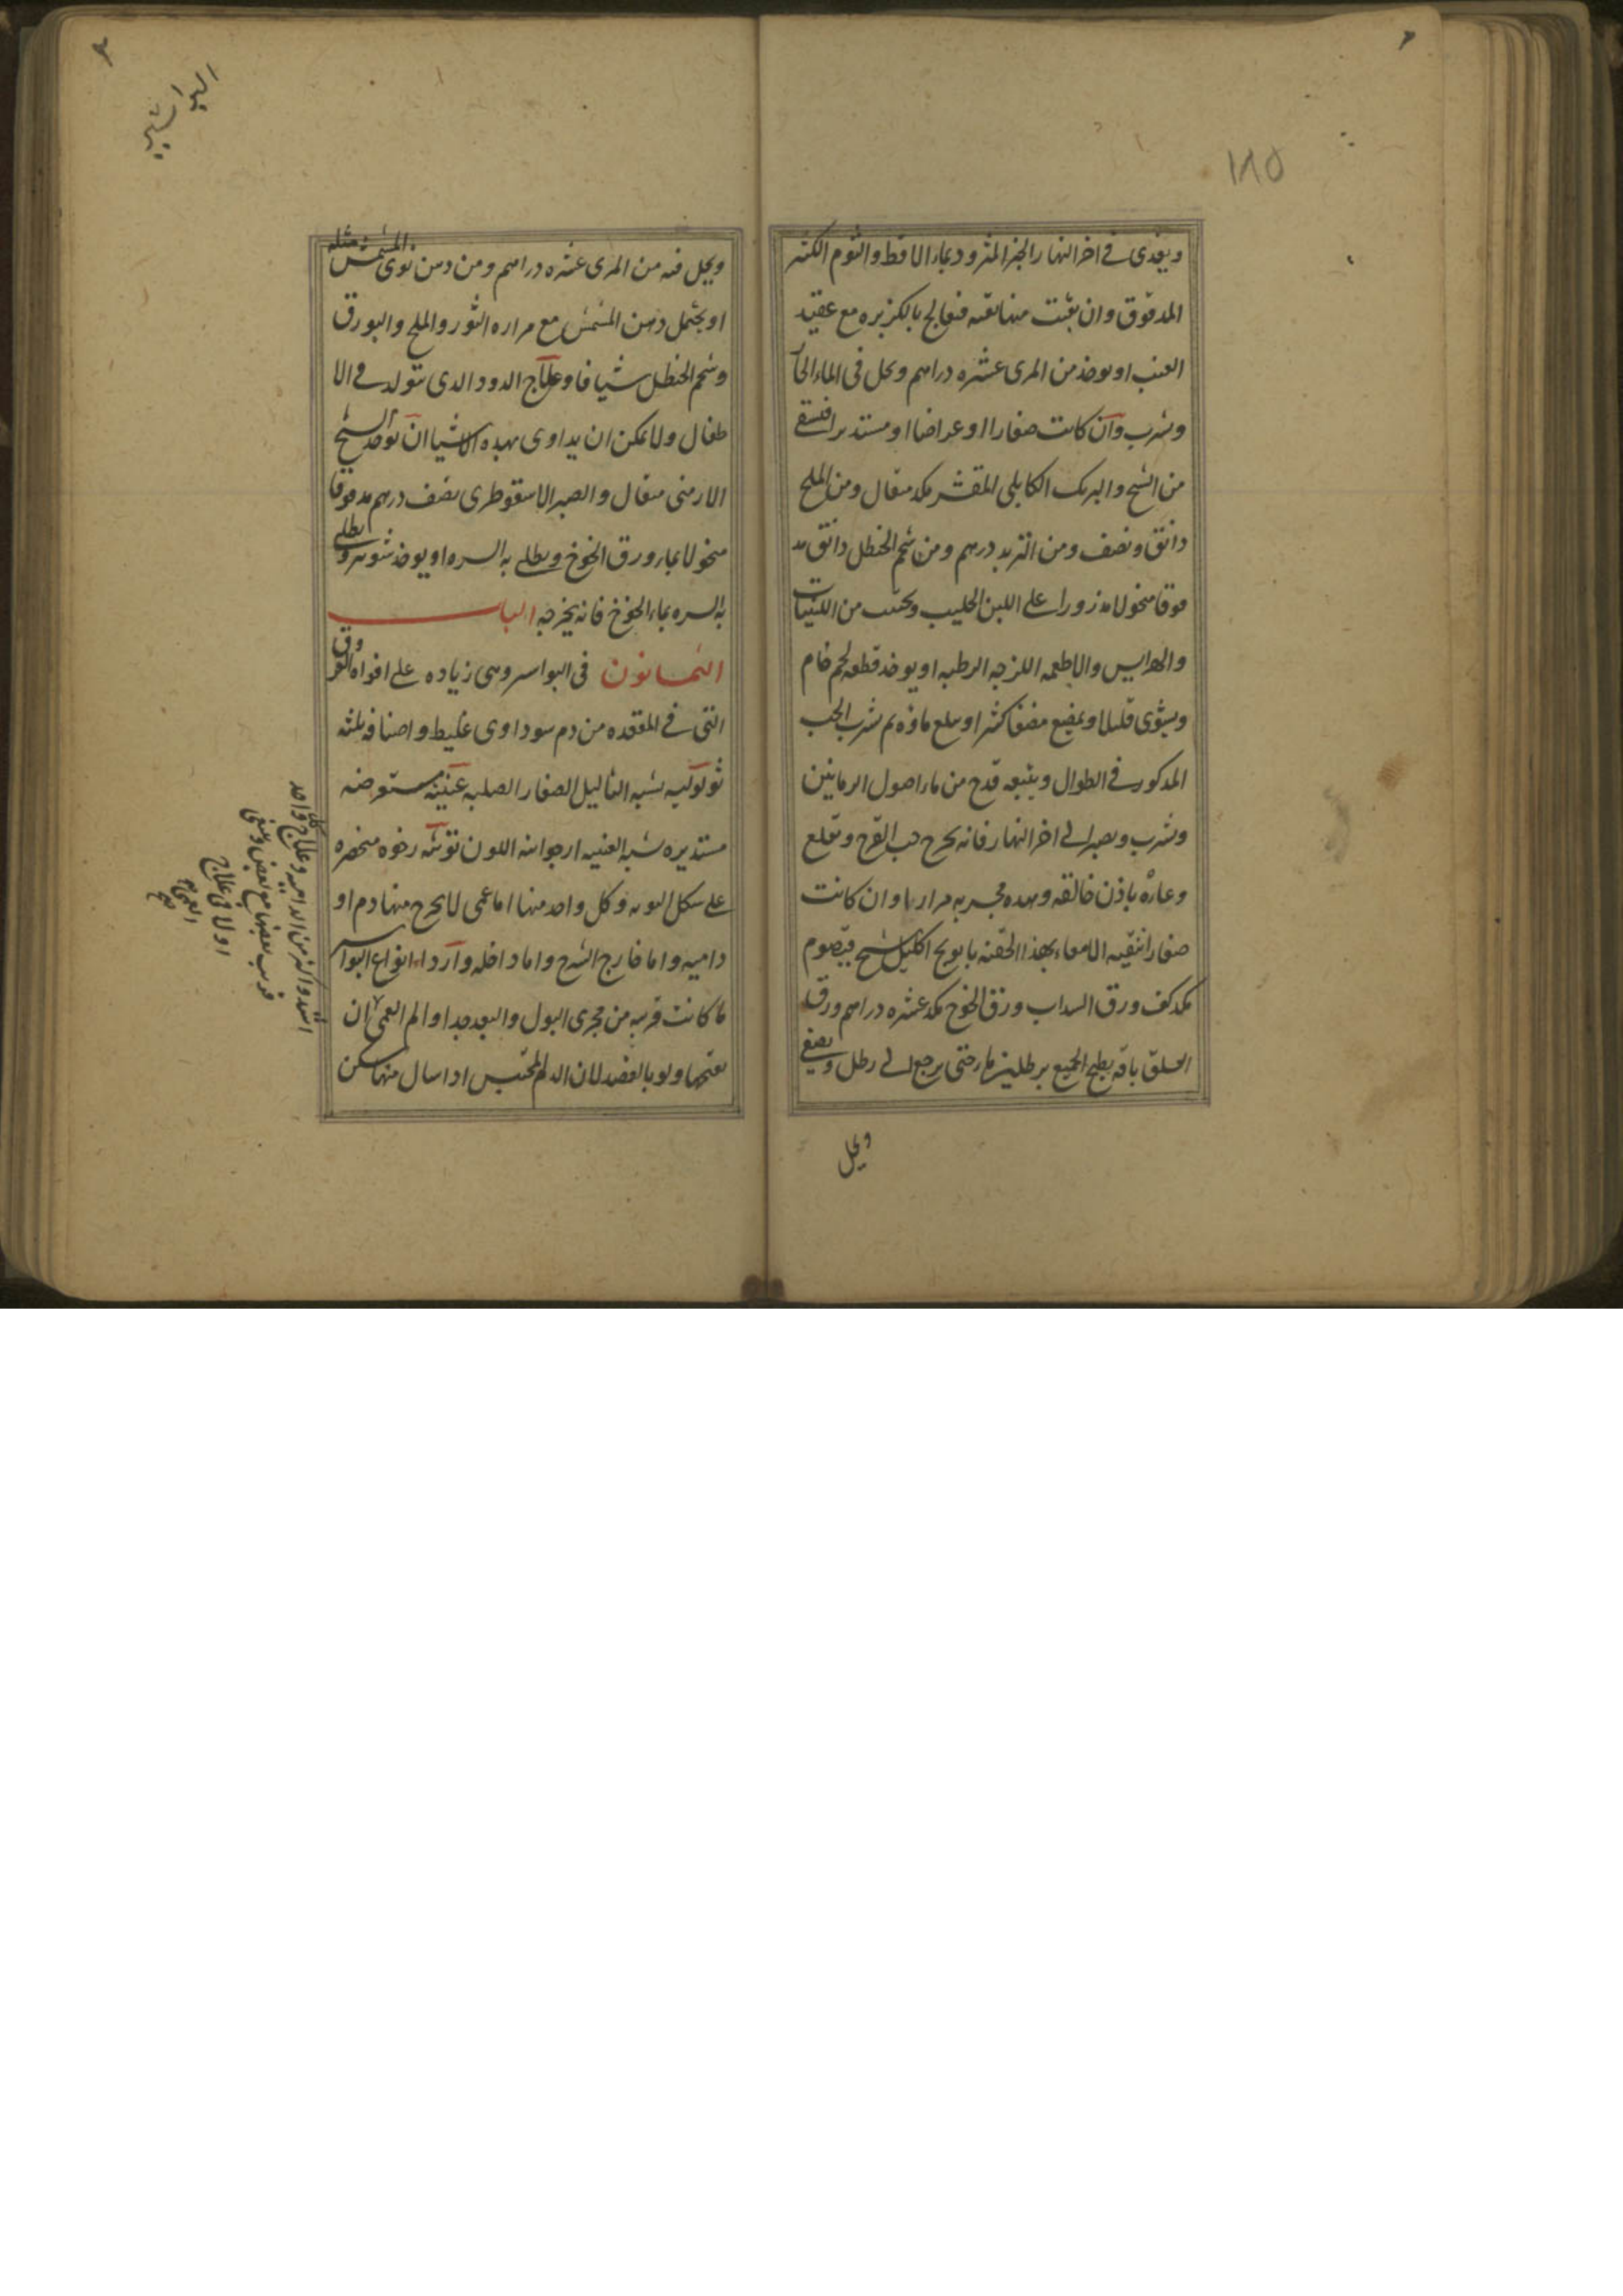 ١٨٥
ويغذى فى اخر النهار الخبز المثرود بماء الاقط والثوم الكثير
المدقوق وان بقيت منها بقيه فتعالج بالكزبره مع عقيد
العنب او يوخذ من المرى عشره دراهم ويحل فى الماء الحار
ويشرب وان كانت صغارا او عراضا او مستديرا فتسقى
من الشيح والبرنك الكابلى المقشر مكد مثقال ومن الملح
دانق ونصف ومن التربد درهم ومن شحم الحنظل دانق مد
قوقا منخولا مذرورا على اللبن الحليب ويجتنب من اللبنيات
والهرايس والاطعمه اللزجه الرطبه او يوخذ قطعه لحم خام
ويشوى قليلا ويمضغ مضغا كثيرا ويبلع ماؤه ثم يشرب الحب
المدكور فى الطوال ويتبعه قدح من ماء اصول الرمانين
ويشرب ويصبر الى اخر النهار فانه يخرج حب القرع وتقلع
وعاره باذن خالقه وهده مجربه مرارا وان كانت
صغارا تنقيه الامعاء بهذا الحقنه بابونج اكليل شيح قيصوم
مكد كف ورق السداب ورق الخوخ مكد عشره دراهم ورق
السلق باقه يطبخ الجميع برطلين ماء حتى يرجع الى رطل ويصفى
ويحل
البواسير
ويحل فيه من المرى عشره دراهم ومن دهن نوى المشمش مثله
او يحتمل دهن المشمش مع مراره الثور والملح والبورق
وشحم الحنظل شيافا وعلاج الدود الدى يتولد فى الا
طفال ولا يمكن ان يداوى بهده الاشيا ان يوخد الشيح
الارمنى مثقال والصبر الاسقوطرى نصف درهم مدقوقا
منخولا بماء ورق الخوخ ويطلى به السره او يوخذ شونيز ويطلى
به السره بماء الخوخ فانه يخرجه الباب
الثمانون فى البواسير وهى زياده على افواه العروق
التى فى المقعده من دم سوداوى غليظ واصنافه ثلثه
ثولوليه يشبه الثاليل الصغار الصلبه عنبيه مستعرضه
مستديره يشبه العنبيه ارجوانيه اللون توثيه رخوه منحصره
على شكل التوثه وكل واحد منها اما عمى لا يخرج منها دم او
داميه واما خارج الشرج واما داخله واردا انواع البواسير
ما كانت قريبه من مجرى البول والبعد جدا والم العمى ان
يفتحها ولو بالفصد لان الدم المحتبس ادا سال منها سكن
اشد واكثر من الداميه وعلاج كل واحد
قريب بعضها مع بعض وينبغى
اولا فى علاج
العمى
صح